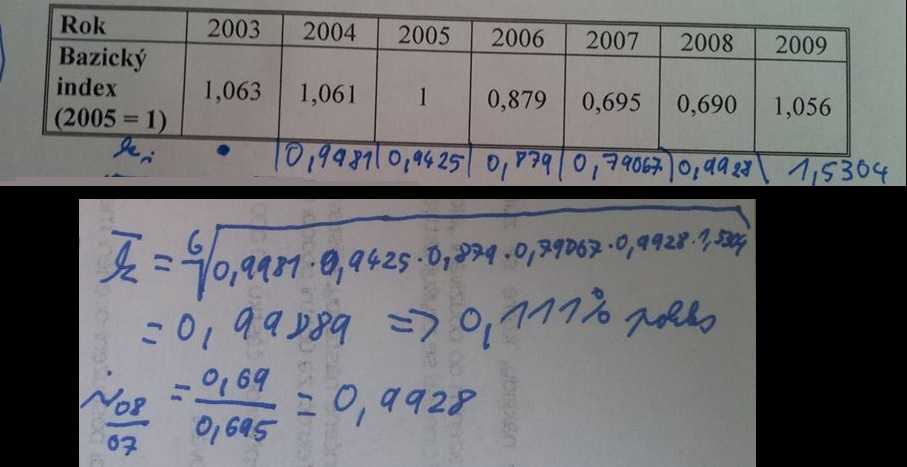 Rok 2003 2004 2005 2006 2007 2008 2009
Bazický index (2005 = 1) 1,063 1,061 1 0,879 0,695 0,690 1,056
k i • 0,9981 0,9425 0,879 0,79067 0,9928 1,5304
k̅ = ⁶√0,9981 · 0,9425 · 0,879 · 0,79067 · 0,9928 · 1,5304
= 0,99889 => 0,111% pokles
i 08/07 = 0,69/0,695 = 0,9928